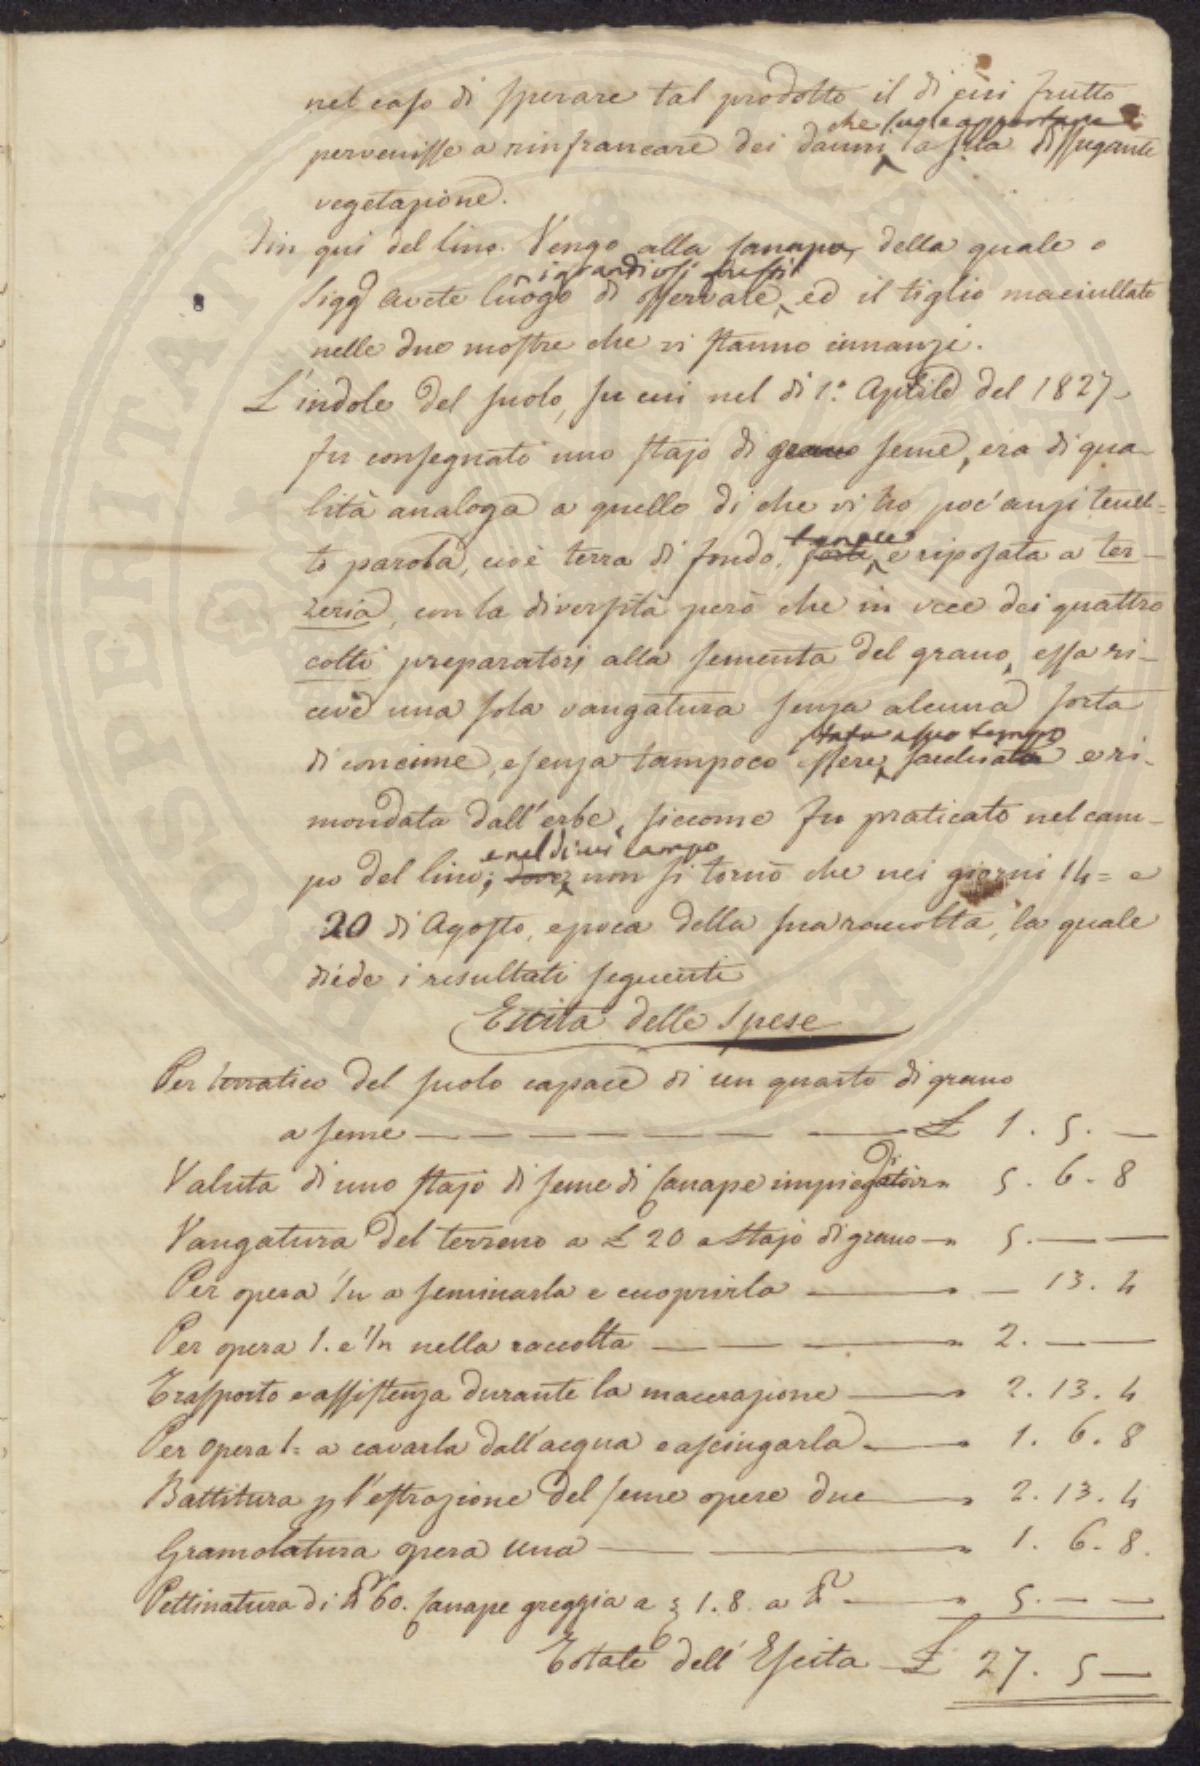 nel caso di sperare tal prodotto il di cui frutto
che
pervenisse a rinfrancare dei danni la sua dissugante
vegetazione.
Fin qui del lino. Vengo alla Canapa, della quale o
i grandiosi fusti
Sigg. avete luogo di osservare, ed il tiglio maciullato
nelle due mostre che vi stanno innanzi.
L'indole del suolo, su cui nel dì 1.° Aprile del 1827
fu consegnato uno stajo di seme, era di qua-
lità analoga a quello di che vi ho poc'anzi tenu-
tenace
to parola, cioè terra di fondo, forte, e riposata a ter-
zeria, con la diversità però che in vece dei quattro
colti preparatorj alla sementa del grano, essa ri-
cevè una sola vangatura senza alcuna sorta
a suo tempo
di concime, e senza tampoco essere sarchiata e ri-
mondata dall'erbe, siccome fu praticato nel cam-
e nel di cui campo
po del lino; dove non si tornò che nei giorni 14 = e
20 di Agosto, epoca della sua raccolta, la quale
diede i resultati seguenti
Escita delle Spese
Per terratico del suolo capace di un quarto di grano
a seme — — — — — — £ 1. 5. —
Valuta di uno stajo di seme di Canape impiegatovi " 5. 6. 8
Vangatura del terreno a £ 20 a Stajo di grano — " 5. — —
Per opera 1/2 a seminarla e cuoprirla — " — 13. 4
Per opera 1. e 1/2 nella raccolta — — — " 2. — —
Trasporto e assistenza durante la macerazione — " 2. 13. 4
Per opera 1= a cavarla dall'acqua e asciugarla — " 1. 6. 8
Battitura p l'estrazione del seme opere due — " 2. 13. 4
Gramolatura opera una — — " 1. 6. 8.
Pettinatura di ℔ 60. Canape greggia a 1. 8. a ℔ — " 5. — —
Totale dell'Escita £ 27. 5 —